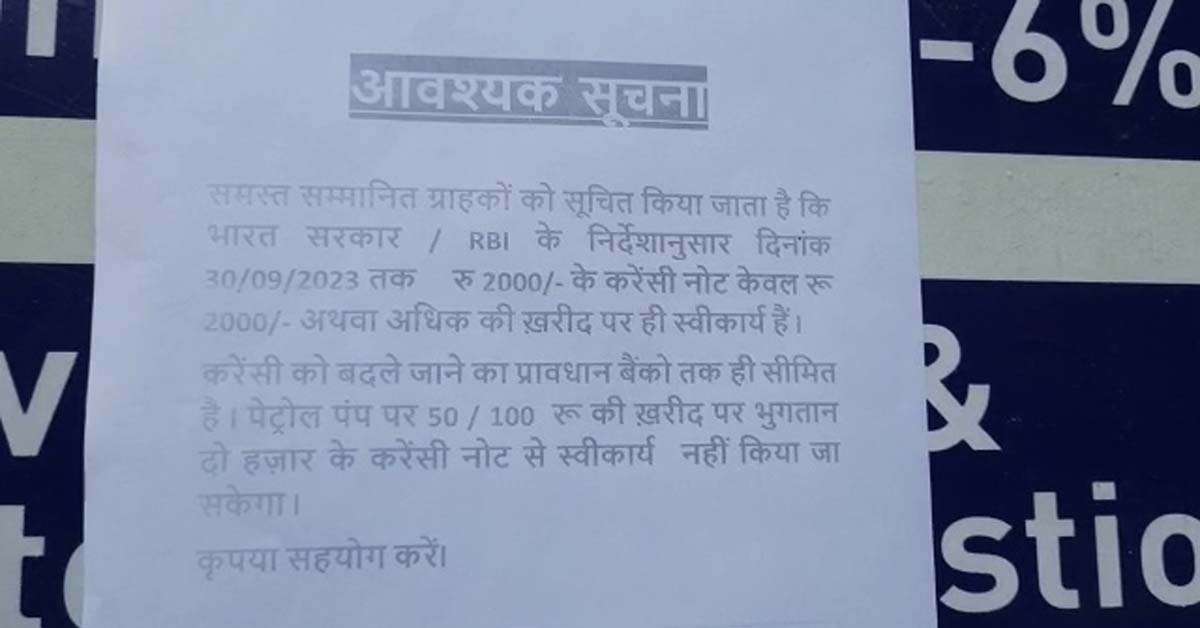 -6%
आवश्यक सूचना
समस्त सम्मानित ग्राहकों को सूचित किया जाता है कि
भारत सरकार / RBI के निर्देशानुसार दिनांक
30/09/2023 तक रु 2000/- के करेंसी नोट केवल रू
2000/- अथवा अधिक की ख़रीद पर ही स्वीकार्य हैं।
करेंसी को बदले जाने का प्रावधान बैंको तक ही सीमित
है। पेट्रोल पंप पर 50 / 100 रू की ख़रीद पर भुगतान
दो हज़ार के करेंसी नोट से स्वीकार्य नहीं किया जा
सकेगा।
कृपया सहयोग करें।
&
stio